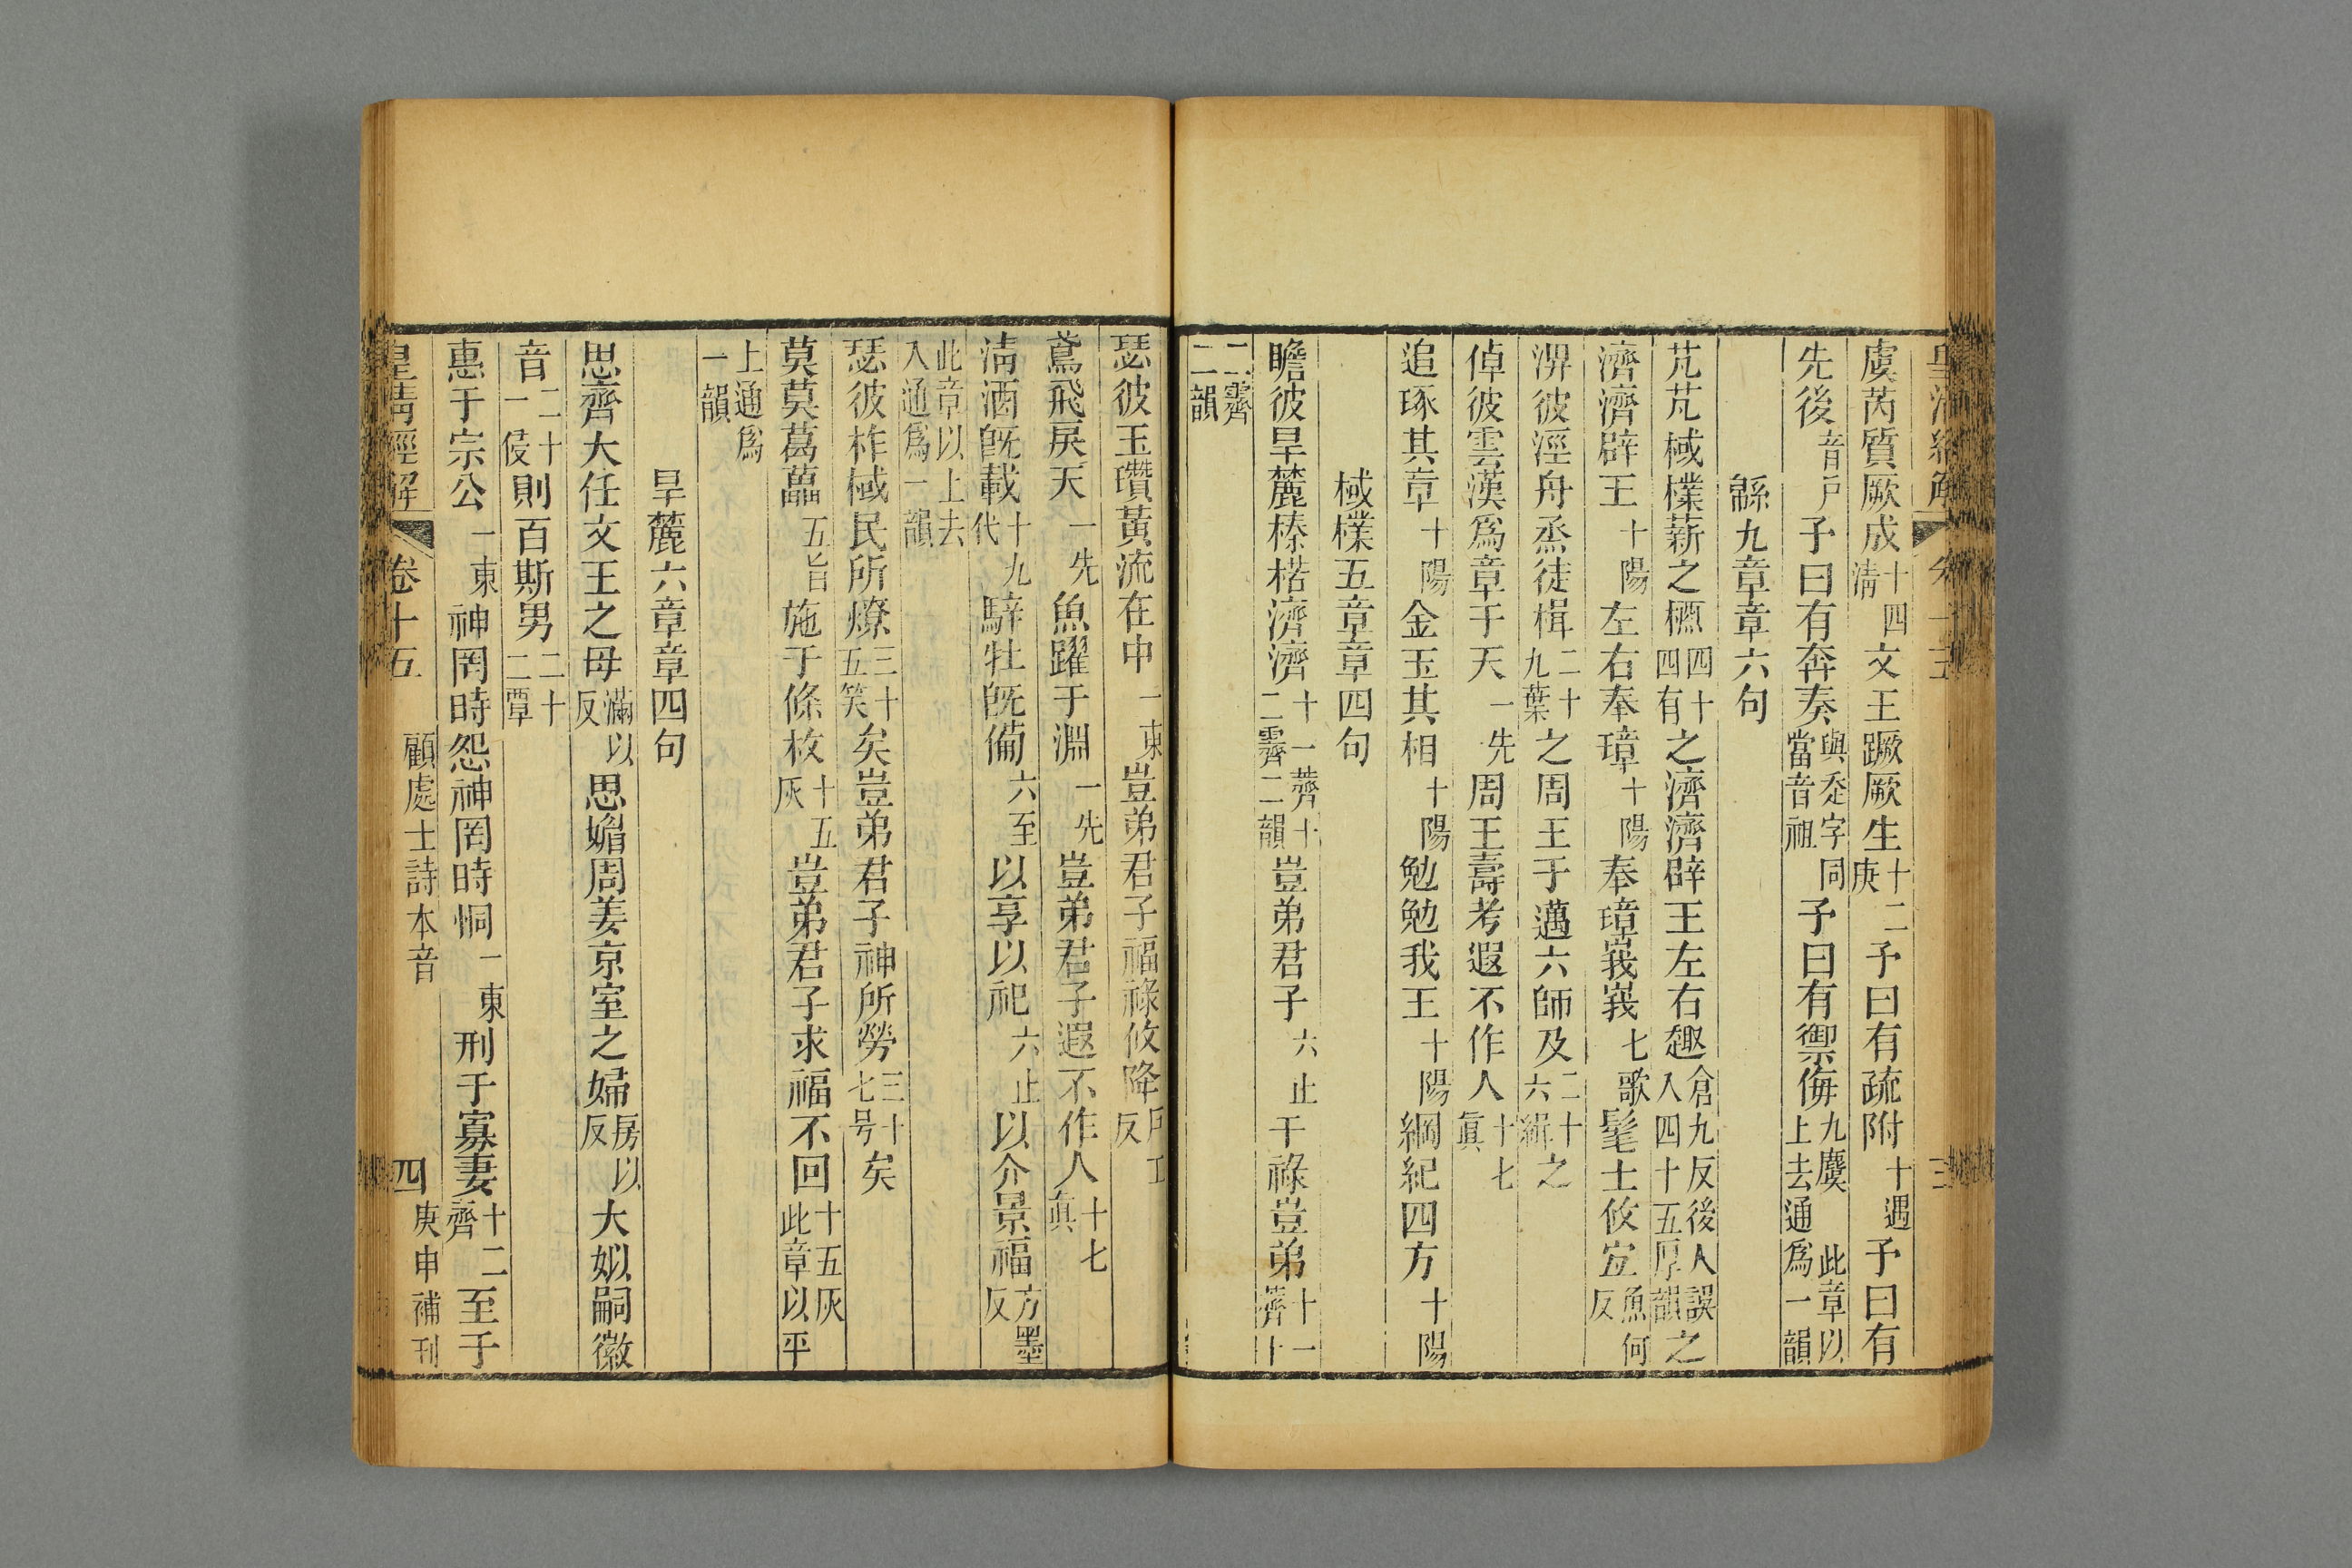 虞芮質厥成十四清文王蹶厥生十二庚予曰有疏附十遇予曰有
先後音戶予曰有奔奏與㐬字同當音祖予曰有禦侮九麌此章以上去通爲一韻
緜九章章六句
芃芃棫樸薪之槱四十四有之濟濟辟王左右趣倉九反後人誤入四十五厚韻之
濟濟辟王十陽左右奉璋十陽奉璋峩峩七歌髦士攸宜魚何反
淠彼涇舟烝徒楫二十九葉之周王于邁六師及二十六緝之
倬彼雲漢爲章于天一先周王壽考遐不作人十七眞
追琢其章十陽金玉其相十陽勉勉我王十陽綱紀四方十陽
棫樸五章章四句
瞻彼旱麓榛楛濟濟十一薺十二霽二韻豈弟君子六止干祿豈弟十一薺十
二霽二韻
瑟彼玉瓚黃流在中一東豈弟君子福祿攸降戶工反
鳶飛戾天一先魚躍于淵一先豈弟君子遐不作人十七眞
淸酒旣載十九代騂牡旣備六至以享以祀六止以介景福方墨反
此章以上去入通爲一韻
瑟彼柞棫民所燎三十五笑矣豈弟君子神所勞三十七号矣
莫莫葛藟五旨施于條枚十五灰豈弟君子求福不回十五灰此章以平
上通爲一韻
旱麓六章章四句
思齊大任文王之母滿以反思媚周姜京室之婦房以反大姒嗣徽
音二十一侵則百斯男二十二覃
惠于宗公一東神罔時怨神罔時恫一東刑于寡妻十二齊至于
皇清經解 卷十五 顧處士詩本音 四 庚申補刊